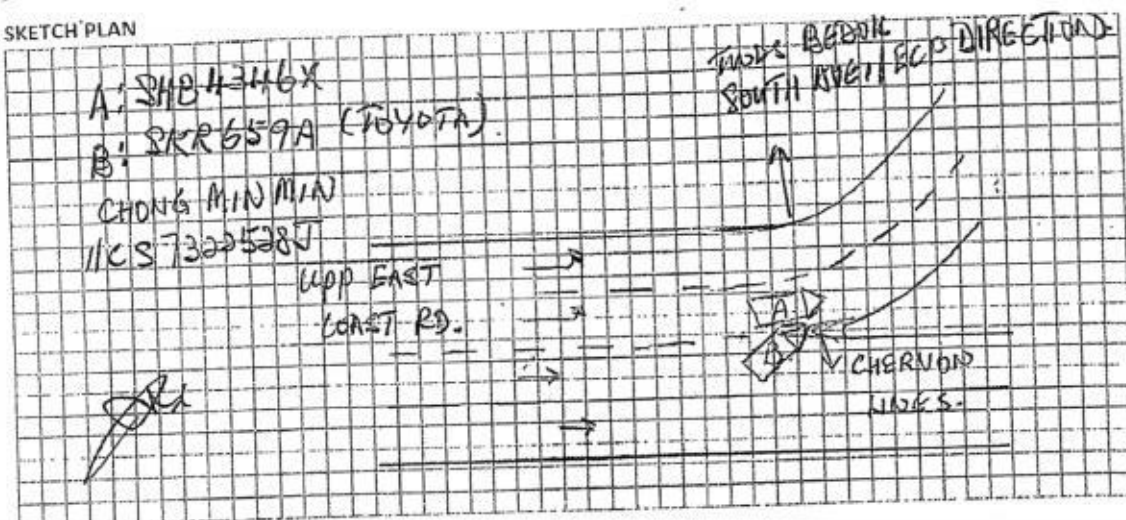 SKETCH PLAN
A: SHB4346X
B: SKR659A (TOYOTA).
CHONG MIN MIN
UPP EAST
COAST RD.
TWDS BEDOK
SOUTH AVE 1/ECP DIRECTION.
A
B
CHERVON
LINES.